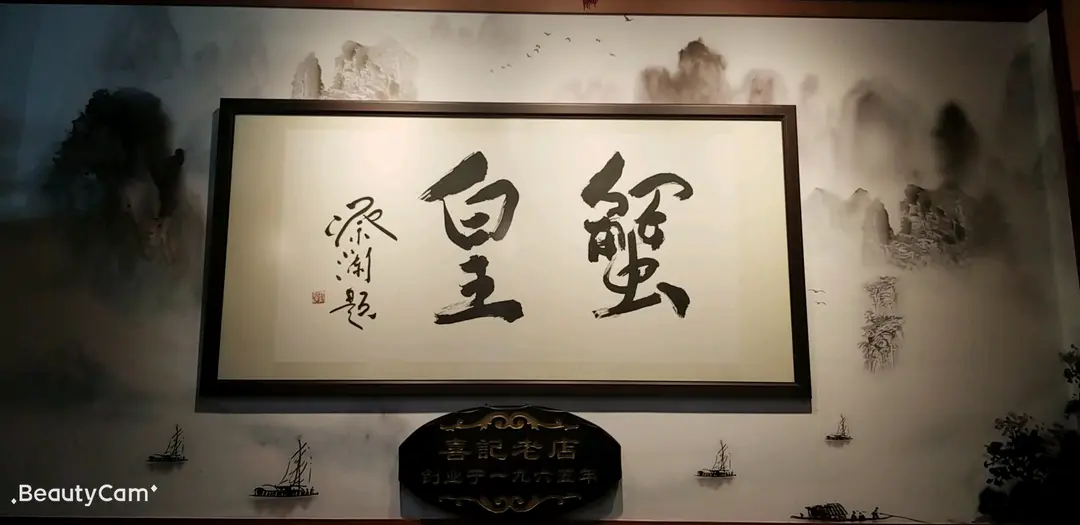 蟹皇
蔡澜题
喜記老店
创业于一九六五年
.BeautyCam